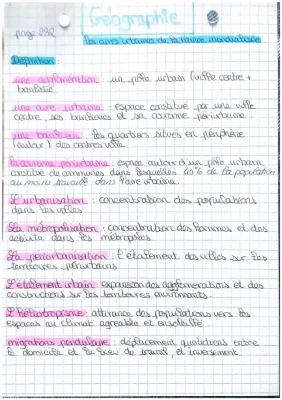 Géographie
page 282
Les aires urbaines de la France mondialisée
Définition :
une agglomération : un pôle urbain (ville centre +
banlieue
une aire urbaine : espace constitué par une ville
centre, ses banlieues et sa couronne périurbaine.
une banlieue : les quartiers situés en périphérie
(autour) des centres villes
La couronne périurbaine : espace autour d'un pôle urbain
constitué de communes dans lesquelles 40% de la population
au moins travaille dans l'aire urbaine.
L'urbanisation : concentration des populations
dans les villes
La métropolisation : concentration des hommes et des
activités dans les métropoles
La périurbanisation : l'étalement des villes sur les
territoires périurbains
L'étalement urbain : expansion des agglomérations et des
constructions sur les territoires environnants.
L'héliotropisme : attirance des populations vers les
espaces au climat agréable et ensoleillé
migrations pendulaire : déplacement quotidiens entre
le domicile et le lieu de travail, et inversement.